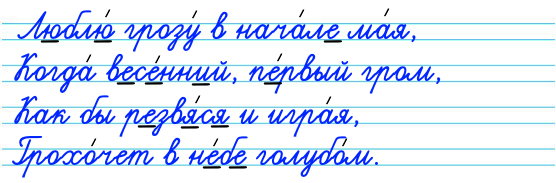 Люблю́ грозу́ в нача́ле ма́я,
Когда́ весе́нний, пе́рвый гром,
Как бы резвя́ся и игра́я,
Грохо́чет в не́бе голубо́м.